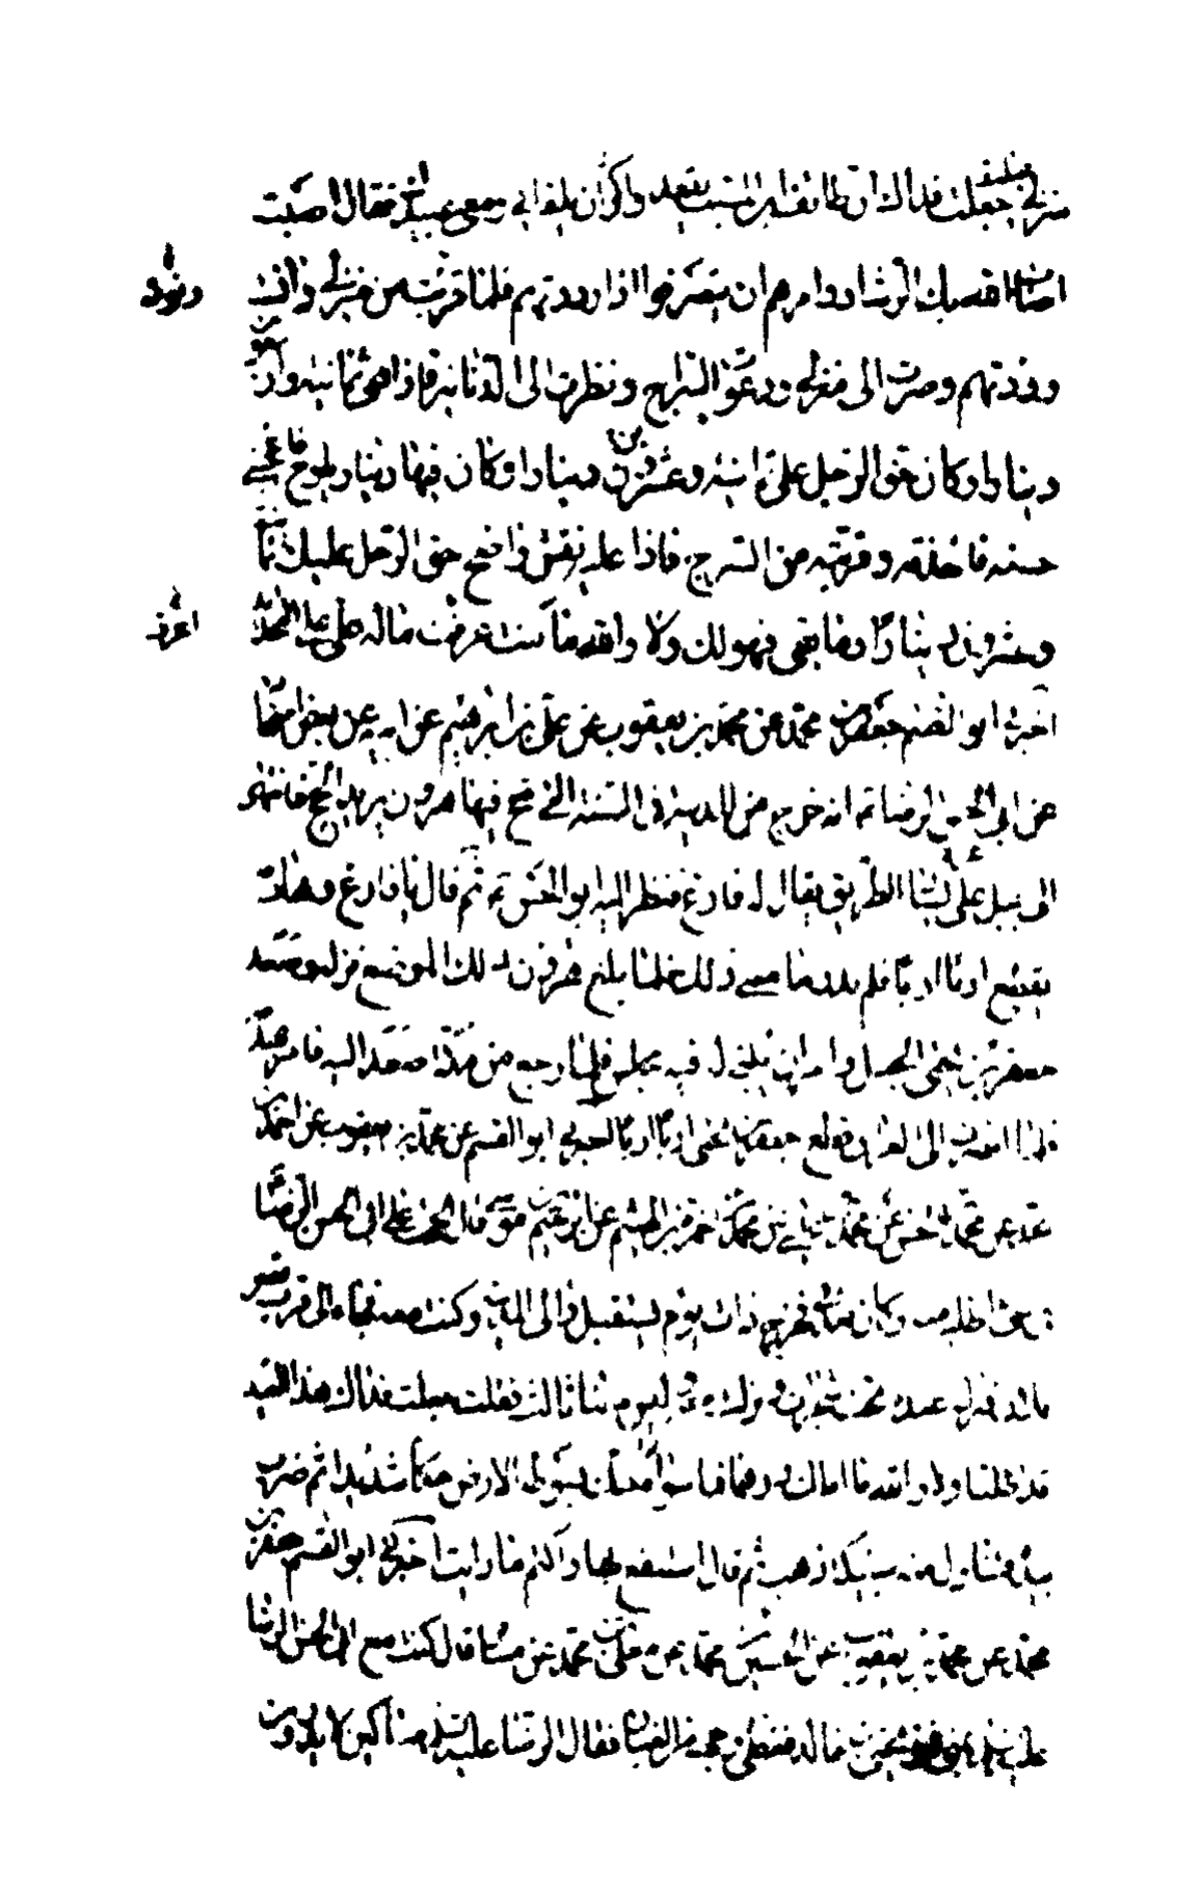 منزلي جعلت فداك ان طائف ابن المسيب يقعد واكره ان يلقاني ومعي عبيدك فقال اصبت
اصاب الله بك الرشاد وامرهم ان ينصرفوا اذا رددتهم فلما قربت من منزلي وانست
رددتهم وصرت الى منزلي ودعوت السراج ونظرت الى الدنانير فاذا هي ثمانية واربعون
دينارا وكان حق الرجل علي ثمانية وعشرين دينارا وكان فيها دينار يلوح فاعجبني
حسنه فاخذته وقربته من السراج فاذا عليه نقش واضح حق الرجل عليك ثمانية
وعشرون دينارا وما بقي فهو لك ولا والله ما كنت عرفت ماله علي على التحديد
اخبرني ابو القسم جعفر بن محمد عن محمد بن يعقوب عن علي بن ابرهيم عن ابيه عن بعض اصحابنا
عن ابي الحسن الرضا انه خرج من المدينة في السنة التي حج فيها هرون يريد الحج فانتهى
الى جبل على يسار الطريق يقال له فارع فنظر اليه ابو الحسن ثم قال يا فارع وهادمه
يقطع اربا اربا فلم ندر ما معنى ذلك فلما بلغ هرون ذلك الموضع نزله وصعد
جعفر بن يحيى الجبل وامر ان يبنى له فيه مجلس فلما رجع من مكة صعد اليه فامر بهدمه
فلما انصرف الى العراق قطع جعفر بن يحيى اربا اربا اخبرني ابو القسم عن محمد بن يعقوب عن احمد بن
محمد عن محمد بن الحسن عن محمد بن عيسى عن محمد بن حمزة بن الهيثم عن ابرهيم بن موسى قال الححت على ابي الحسن الرضا
في شيء اطلبه منه وكان يعدني فخرج ذات يوم يستقبل والي المدينة وكنت معه فجاء الى قرب قصر
فلان فنزل عنده تحت شجرات ونزلت معه وليس معنا ثالث فقلت جعلت فداك هذا العيد
قد اظلنا ولا والله ما املك درهما فما سواه فحك بسوطه الارض حكا شديدا ثم ضرب
بيده فتناول منه سبيكة ذهب ثم قال استنفع بها واكتم ما رايت اخبرني ابو القسم جعفر بن
محمد عن محمد بن يعقوب عن الحسين بن محمد عن معلى بن محمد عن مسافر قال كنت مع ابي الحسن الرضا
يحيى بن خالد فغطى وجهه من الغبار فقال الرضا عليه السلم مساكين لا يدرون
ودنوت
اعرف